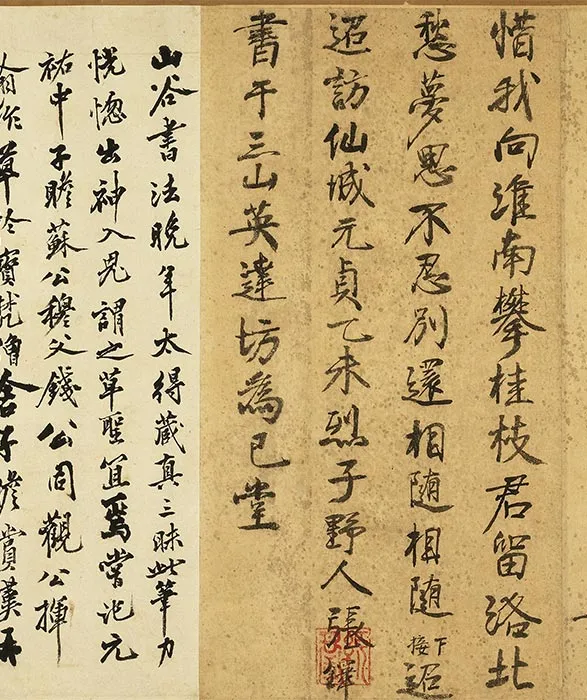 惜我向淮南攀桂枝君留洛北
愁夢思不忍別還相随相随接下迢
迢訪仙城元貞乙未烈子野人張鐸
書于三山英達坊為已堂
山谷書法晚年太得藏真三昧此筆力
恍惚出神入鬼謂之草聖宜焉嘗記元
祐中子瞻蘇公穆父錢公同觀公揮
翁作草於寳梵僧舍子瞻賞嘆再